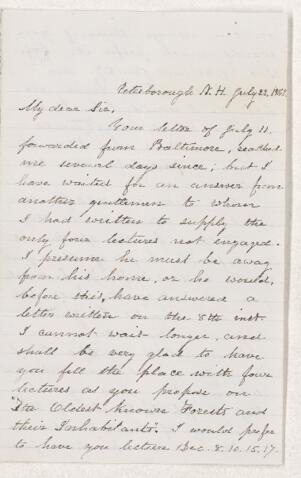 Peterborough N.H. July 23, 186
My dear Sir,
Your letter of July 11.
forwarded from Baltimore, reached
me several days since; but I
have waited for an answer from
another gentleman to whom
I had written to supply the
only four lectures not engaged.
I presume he must be away
from his home, or he would,
before this, have answered a
letter written on the 8th inst.
I cannot wait longer, and
shall be very glad to have
you fill the place with four
lectures as you propose on
"The Oldest Known Forests and
their Inhabitants". I would prefer
to have you lecture Dec. 8. 10. 15. 17.